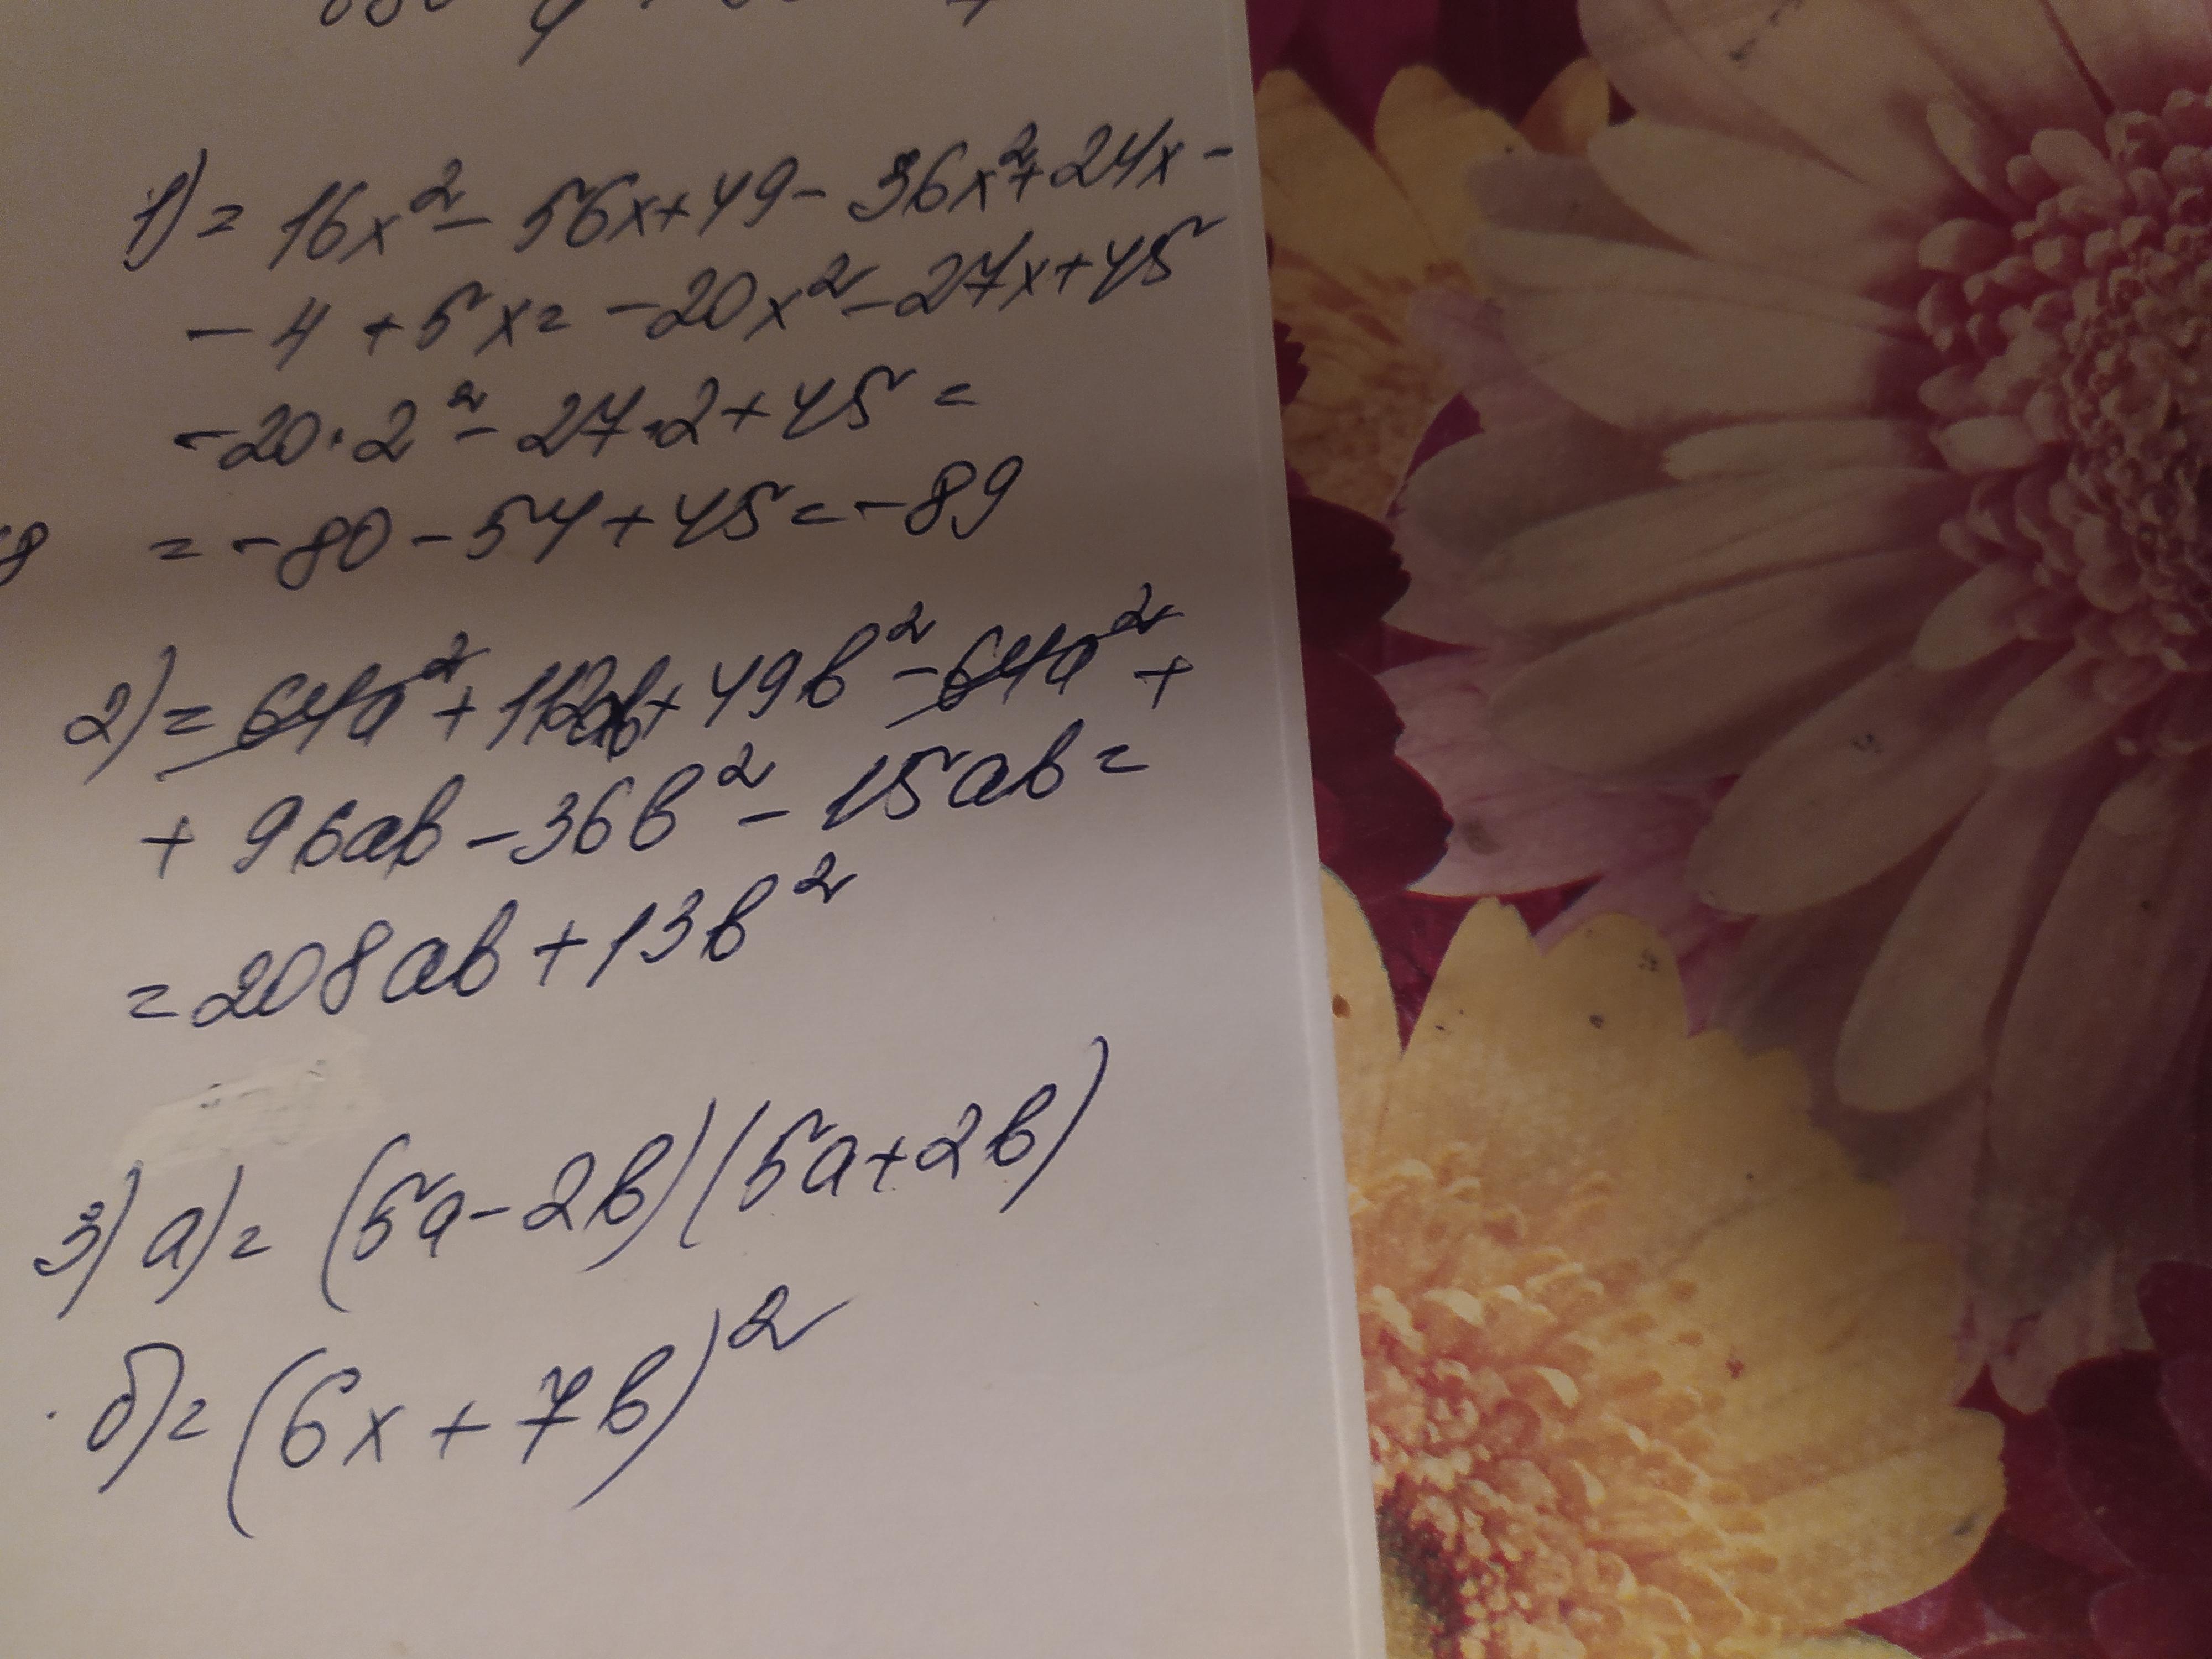 1) = 16x² - 56x + 49 - 36x² + 24x -
- 4 + 5x = -20x² - 27x + 45
-20·2² - 27·2 + 45 =
= -80 - 54 + 45 = -89
2) = 64a² + 112ab + 49b² - 64a² +
+ 96ab - 36b² - 15ab =
= 208ab + 13b²
3) а) = (5a - 2b)(5a + 2b)
б) = (6x + 7b)²